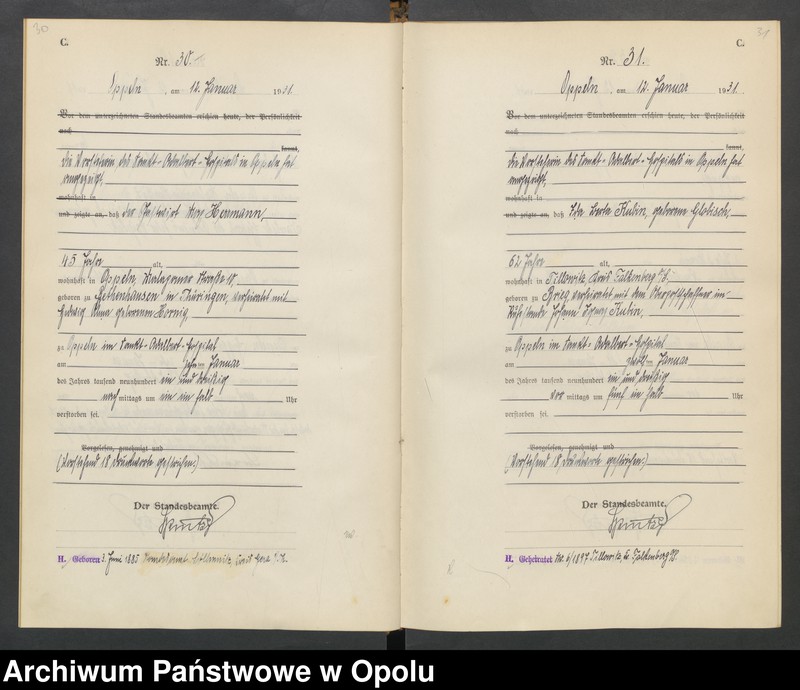 30
C.
Nr. 30.
Oppeln, am 12. Januar 1931.
Vor dem unterzeichneten Standesbeamten erschien heute, der Persönlichkeit
nach
kannt,
Die Vorsteherin des Sankt-Adalbert-Hospitals in Oppeln hat
angezeigt,
wohnhaft in
und zeigte an, daß der Gastwirt Herrmann,
45 Jahre alt,
wohnhaft in Oppeln, Malapaner Straße
geboren zu in Thüringen, verheiratet mit
Hedwig Anna geborenen Hornig,
zu Oppeln im Sankt-Adalbert-Hospital
am zehnten Januar
des Jahres tausend neunhundert ein und dreißig
nach mittags um ein ein halb Uhr
verstorben sei.
Vorgelesen, genehmigt und
(Vorstehend 18 Druckworte gestrichen.)
Der Standesbeamte.
H. Geboren 3. Juni 1885 Standesamt
31
C.
Nr. 31.
Oppeln am 12. Januar 1931.
Vor dem unterzeichneten Standesbeamten erschien heute, der Persönlichkeit
nach
kannt,
Die Vorsteherin des Sankt-Adalbert-Hospitals in Oppeln hat
angezeigt,
wohnhaft in
und zeigte an, daß Berta Kubin, geborene Globisch,
62 Jahre alt,
wohnhaft in Tillowitz Kreis Falkenberg O/S.
geboren zu Brieg, verheiratet mit dem Oberpostschaffner im
Ruhestande Johann Kubin,
zu Oppeln im Sankt-Adalbert-Hospital
am Januar
des Jahres tausend neunhundert ein und dreißig
vor mittags um fünf ein halb Uhr
verstorben sei.
Vorgelesen, genehmigt und
(Vorstehend 18 Druckworte gestrichen.)
Der Standesbeamte.
H. Geheiratet 6/1897 Tillowitz, Falkenberg O/S.
Archiwum Państwowe w Opolu